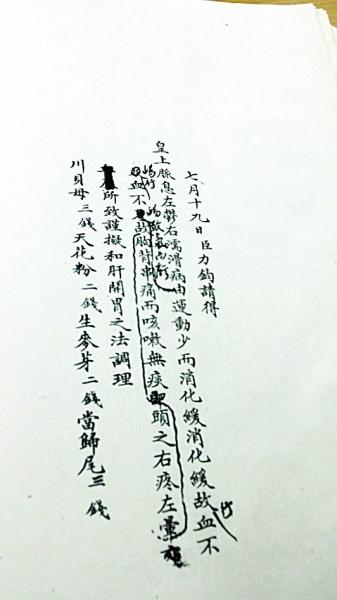 七月十九日臣力鈞請得
皇上脈息左鬱右濡滑病由運動少而消化緩消化緩故血不
行
血不故胸背串痛而咳嗽無痰即頭之右疼左
所致謹擬和肝開胃之法調理
川貝母三錢天花粉二錢生麥芽二錢當歸尾三錢